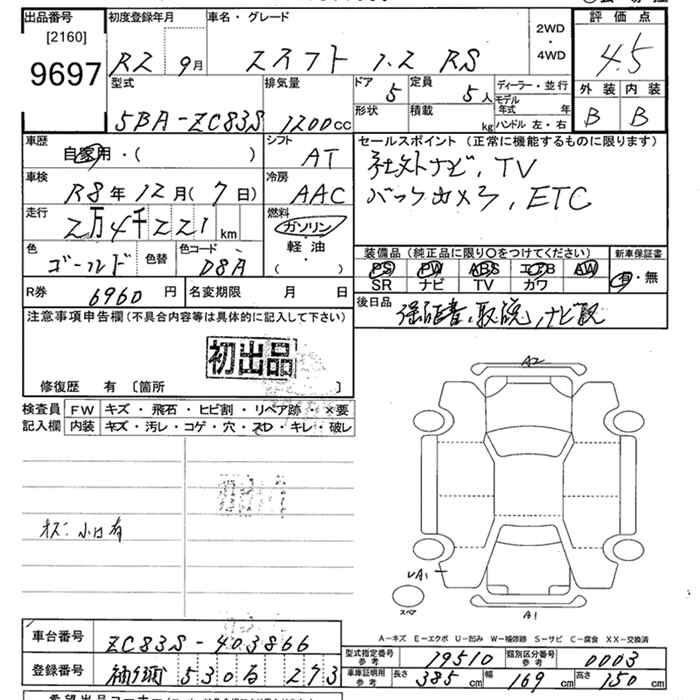 出品番号 初度登録年月 車名・グレード 2WD・4WD 評価点
[2160]
9697 R2 9月 スイフト 1.2 RS 4.5
型式 排気量 ドア 定員 ディーラー・並行 外装 内装
5BA-ZC83S 1200cc 5 5人 モデル年式 年 B B
形状 積載 kg ハンドル 左・右
車歴 自家用・( ) シフト AT
セールスポイント(正常に機能するものに限ります)
社外ナビ、TV
バックカメラ、ETC
車検 R8年12月(7日) 冷房 AAC
走行 2万4千221km 燃料 ガソリン 軽油 ( )
色 ゴールド 色替 色コード D8A
装備品(純正品に限り〇をつけてください) 新車保証書
PS PW ABS エアB AW 有・無
SR ナビ TV カワ
R券 6960円 名変期限 月 日
後日品 保証書、取説、ナビ説
注意事項申告欄(不具合内容等は具体的に記入して下さい)
初出品
修復歴 有〔箇所 〕
検査員記入欄 FW キズ・飛石・ヒビ割・リペア跡・X要
内装 キズ・汚レ・コゲ・穴・スレ・キレ・破レ
A2
キズ:小傷有
UA1
スペア
A1
A-キズ E-エクボ U-凹み W-補修跡 S-サビ C-腐食 XX-交換済
車台番号 ZC83S-403866
型式指定番号 参考 19510 類別区分番号 参考 0003
登録番号 530 る 273
車庫証明用 参考 長さ 385cm 幅 169cm 高さ 150cm